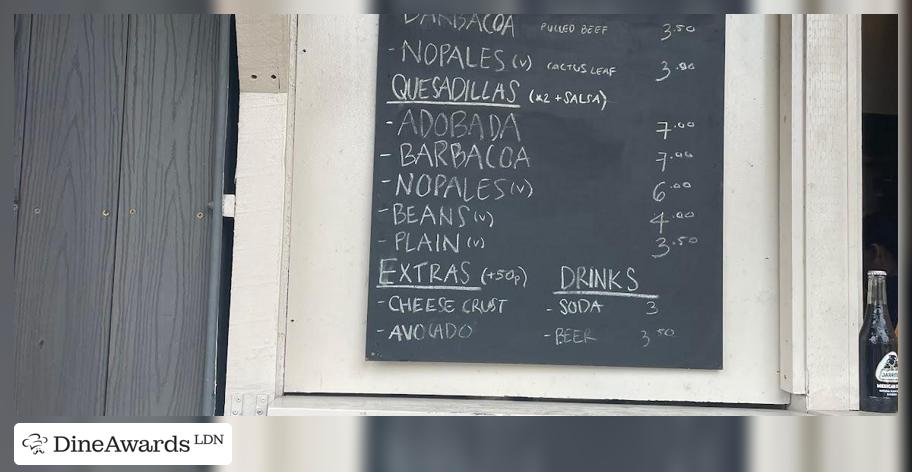 BARBACOA PULLED BEEF 3.50
- NOPALES (V) CACTUS LEAF 3.00
QUESADILLAS (x2 + SALSA)
- ADOBADA 7.00
- BARBACOA 7.00
- NOPALES (V) 6.00
- BEANS (V) 4.00
- PLAIN (V) 3.50
EXTRAS (+50p)
- CHEESE CRUST
- AVOCADO
DRINKS
- SODA 3
- BEER 3.50
DineAwards LDN